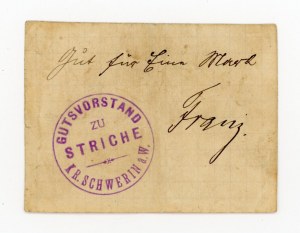 Gut für Eine Mark
Franz.
GUTSVORSTAND
ZU
STRICHE
KR. SCHWERIN a. W.